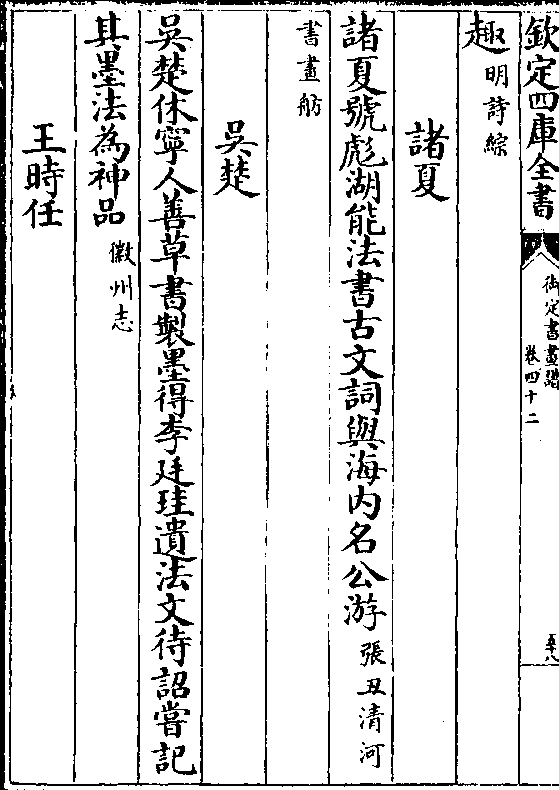 欽定四庫全書
御定書畫譜
卷四十二
五十八
趣明詩綜
諸夏
諸夏號彪湖能法書古文詞與海内名公游張丑清河
書畫舫
吳楚
吳楚休寧人善草書製墨得李廷珪遺法文待詔嘗記
其墨法為神品徽州志
王時任